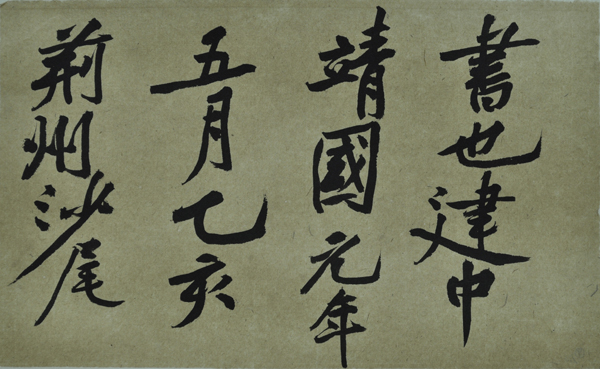 書也建中
靖國元年
五月乙亥
荊州沙尾